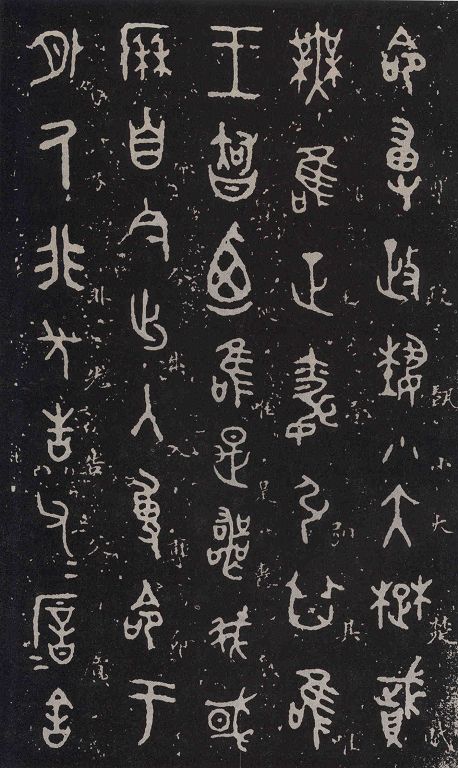 命尃政埶小大楚賦
無唯正昏引其唯
王智迺唯是喪我或
厤自今出入尃命于
外厥非先告父=厝=舍